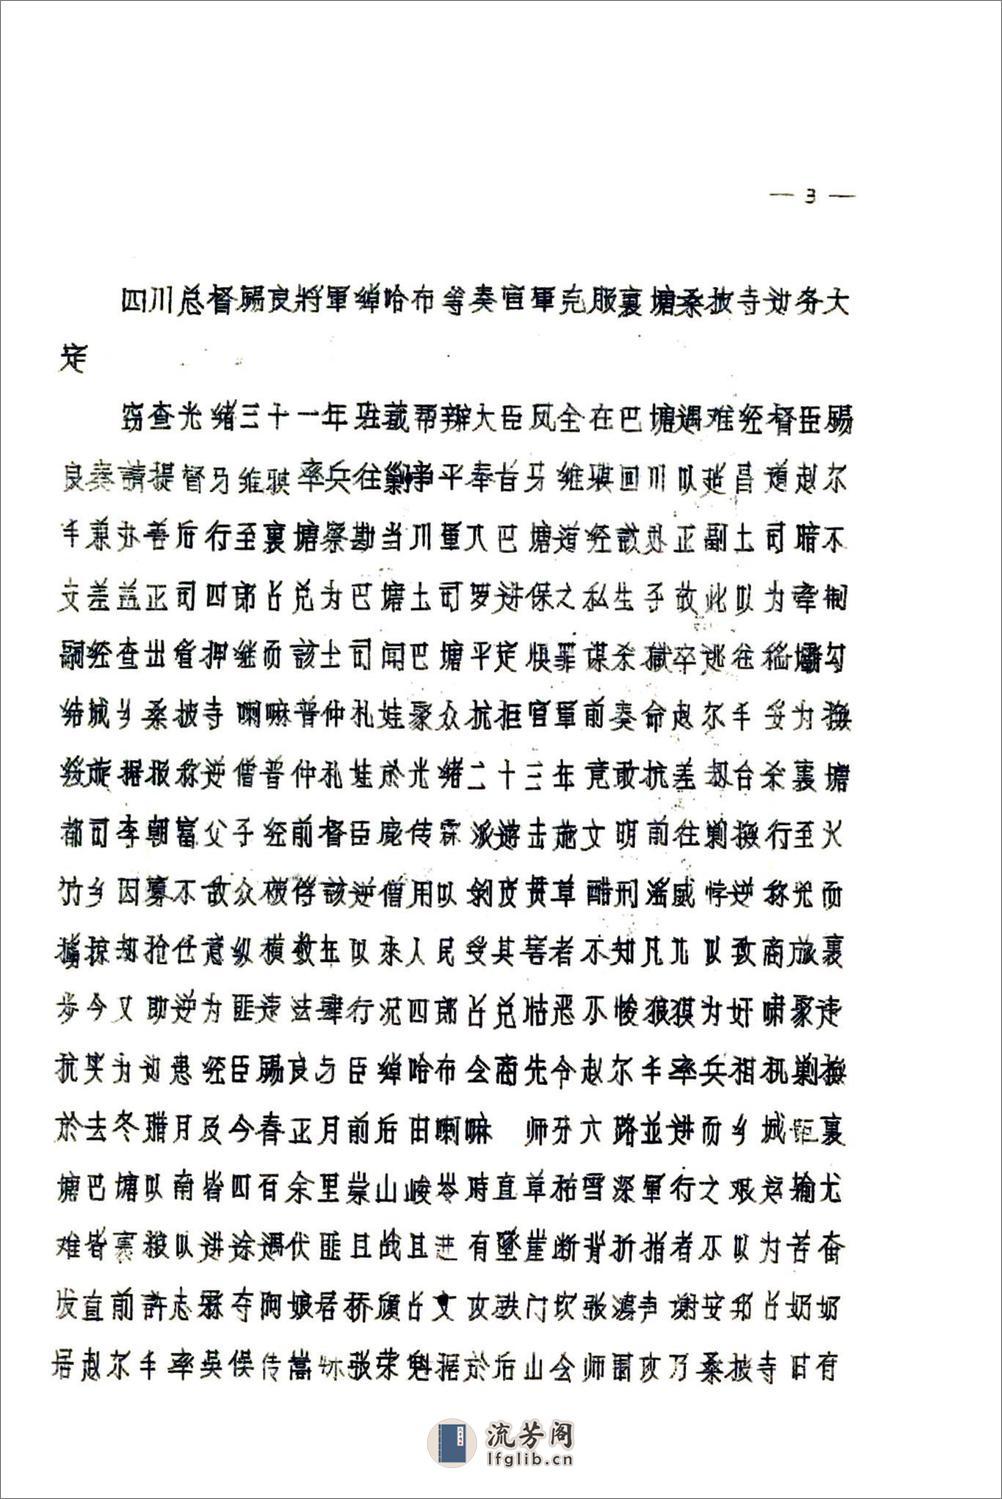 — 3 —
四川总督赐良將軍绰哈布等奏官軍克服裏塘桑披寺边务大
定
窃查光绪三十一年驻藏帮辦大臣凤全在巴塘遇难经督臣赐
良奏請提督马维骐率兵往剿争平奉旨马维骐回川以建昌道赵尔
丰兼办善后行至裏塘察勘当川軍入巴塘道经該处正副土司暗不
支差盖正司四郎占兑为巴塘土司罗进保之私生子故此以为牵制
嗣经查出看押继而該土司闻巴塘平定惧罪谋杀獄卒逃往稻壩勾
结城乡桑披寺喇嘛普仲札娃聚众抗拒官軍前奏命赵尔丰妥为撫
綏旋据报称逆僧普仲札娃於光绪二十三年竟敢抗差劫台杀裏塘
都司李朝富父子经前督臣鹿传霖派游击施文明前往剿撫行至火
竹乡因寡不敌众被俘該逆僧用以剝皮贯草酷刑滛威悖逆称光而
擄掠劫抢任意纵横数年以来人民受其害者不知凡几以致商旅裹
步今又助逆为匪违法肆行况四郎占兑怙恶不悛狼狈为奸啸聚违
抗实为边患经臣赐良与臣绰哈布会商先令赵尔丰率兵相机剿撫
於去冬腊月及今春正月前后由喇嘛 师分六路並进而乡城距裏
塘巴塘以南皆四百余里崇山峻岺時直草枯雪深軍行之艰运输尤
难皆裹粮以进途遇伏匪且战且进有墜崖断背折指者不以为苦奋
发直前許志霖夺阿娘居桥颜占文攻跌门坎张鴻声谢安邦占奶奶
居赵尔丰率吳俣传嵩炑张荣魁据於后山会师围攻乃桑披寺旧有
流芳阁
lfglib.cn